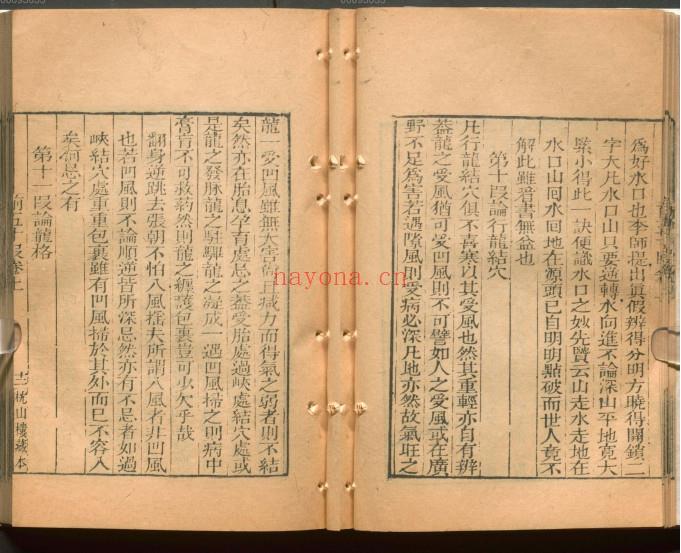 為好水口也李師提出真假辨得分明方曉得關鎖二
字大凡水口山只要逆轉水向進不論深山平地寬大
緊小得此一訣便識水口之妙先賢云山走水走地在
水口山囘水囘地在源頭已自明明點破而世人竟不
解此雖着書無益也
第十叚論行龍結穴
凡行龍結穴俱不喜寒以其受風也然其重輕亦自有辨
葢龍之受風猶可受凹風則不可譬如人之受風或在廣
野不足為害若遇隙風則受病必深凡地亦然故氣旺之
龍一受凹風雖無大害
力而得氣之弱者則不結
矣然亦在胎息孕育處忌之葢受胎處過峽處結穴處或
是龍之發脉龍之駐驆龍之凝成一遇凹風掃之則病中
膏肓不可救药然則龍之纏護包裹豈可少欠乎哉
翻身逆跳去張朝不怕八風搖夫所謂八風者非凹風
也若凹風則不論順逆皆所深忌然亦有不忌者如過
峽結穴處重重包裹雖有凹風掃於其外而巳不容入
矣何忌之有
第十一叚論龍格
卷上
枕山樓藏本
nayona.cn
00095055
00095055